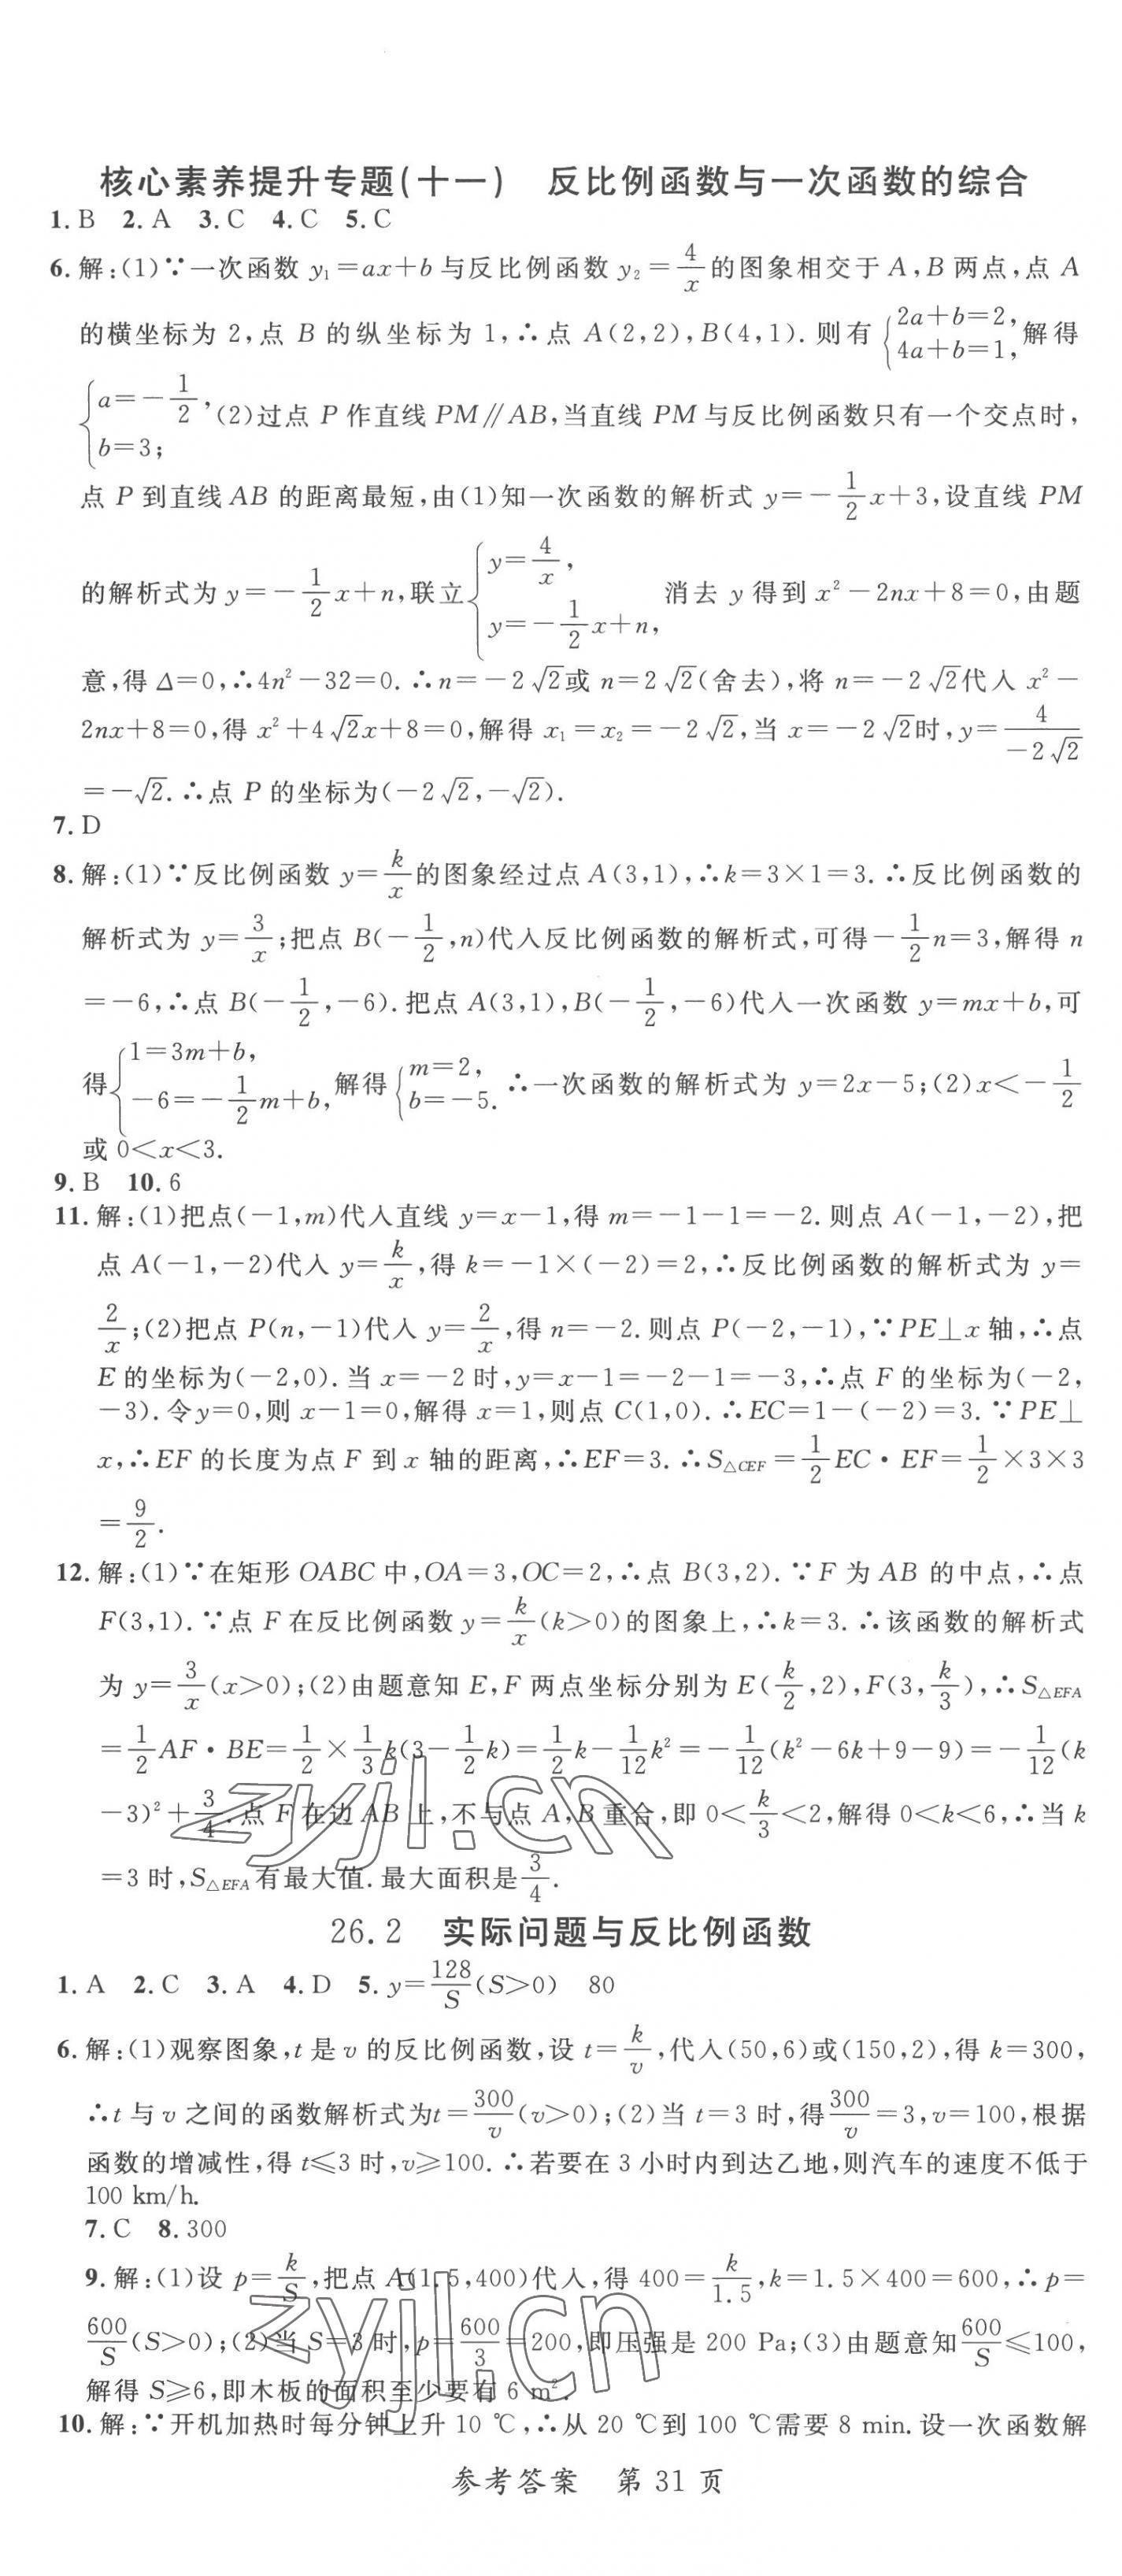 核心素养提升专题(十一)　反比例函数与一次函数的综合
1. B　2. A　3. C　4. C　5. C
6. 解:(1)∵一次函数 y₁=ax+b 与反比例函数 y₂=4/x 的图象相交于 A,B 两点,点 A
的横坐标为 2,点 B 的纵坐标为 1,∴点 A(2,2),B(4,1). 则有{2a+b=2, 4a+b=1, 解得
{a=-1/2, b=3; (2)过点 P 作直线 PM∥AB,当直线 PM 与反比例函数只有一个交点时,
点 P 到直线 AB 的距离最短,由(1)知一次函数的解析式 y=-1/2x+3,设直线 PM
的解析式为 y=-1/2x+n,联立{y=4/x, y=-1/2x+n, 消去 y 得到 x²-2nx+8=0,由题
意,得 Δ=0,∴4n²-32=0. ∴n=-2√2或 n=2√2(舍去),将 n=-2√2代入 x²-
2nx+8=0,得 x²+4√2x+8=0,解得 x₁=x₂=-2√2,当 x=-2√2时,y=4/(-2√2)
=-√2. ∴点 P 的坐标为(-2√2,-√2).
7. D
8. 解:(1)∵反比例函数 y=k/x 的图象经过点 A(3,1),∴k=3×1=3. ∴反比例函数的
解析式为 y=3/x;把点 B(-1/2,n)代入反比例函数的解析式,可得-1/2n=3,解得 n
=-6,∴点 B(-1/2,-6). 把点 A(3,1),B(-1/2,-6)代入一次函数 y=mx+b,可
得{1=3m+b, -6=-1/2m+b, 解得{m=2, b=-5. ∴一次函数的解析式为 y=2x-5;(2)x<-1/2
或 0<x<3.
9. B　10. 6
11. 解:(1)把点(-1,m)代入直线 y=x-1,得 m=-1-1=-2. 则点 A(-1,-2),把
点 A(-1,-2)代入 y=k/x,得 k=-1×(-2)=2,∴反比例函数的解析式为 y=
2/x;(2)把点 P(n,-1)代入 y=2/x,得 n=-2. 则点 P(-2,-1),∵PE⊥x 轴,∴点
E 的坐标为(-2,0). 当 x=-2 时,y=x-1=-2-1=-3,∴点 F 的坐标为(-2,
-3). 令y=0,则 x-1=0,解得 x=1,则点 C(1,0). ∴EC=1-(-2)=3. ∵PE⊥
x,∴EF 的长度为点 F 到 x 轴的距离,∴EF=3. ∴S△CEF=1/2EC·EF=1/2×3×3
=9/2.
12. 解:(1)∵在矩形 OABC 中,OA=3,OC=2,∴点 B(3,2). ∵F 为 AB 的中点,∴点
F(3,1). ∵点 F 在反比例函数 y=k/x(k>0)的图象上,∴k=3. ∴该函数的解析式
为 y=3/x(x>0);(2)由题意知 E,F 两点坐标分别为 E(k/2,2),F(3,k/3),∴S△EFA
=1/2AF·BE=1/2×1/3k(3-1/2k)=1/2k-1/12k²=-1/12(k²-6k+9-9)=-1/12(k
-3)²+3/4. 点 F 在边 AB 上,不与点 A,B 重合,即 0<k/3<2,解得 0<k<6,∴当 k
=3 时,S△EFA有最大值. 最大面积是3/4.
26.2　实际问题与反比例函数
1. A　2. C　3. A　4. D　5. y=128/S(S>0)　80
6. 解:(1)观察图象,t 是 v 的反比例函数,设 t=k/v,代入(50,6)或(150,2),得 k=300,
∴t 与 v 之间的函数解析式为t=300/v(v>0);(2)当 t=3 时,得300/v=3,v=100,根据
函数的增减性,得 t≤3 时,v≥100. ∴若要在 3 小时内到达乙地,则汽车的速度不低于
100 km/h.
7. C　8. 300
9. 解:(1)设 p=k/S,把点 A(1.5,400)代入,得 400=k/1.5,k=1.5×400=600,∴p=
600/S(S>0);(2)当 S=3 时,p=600/3=200,即压强是 200 Pa;(3)由题意知600/S≤100,
解得 S≥6,即木板的面积至少要有 6 m².
10. 解:∵开机加热时每分钟上升 10 ℃,∴从 20 ℃到 100 ℃需要 8 min. 设一次函数解
参考答案　第 31 页
zyjl.cn
zyjl.cn